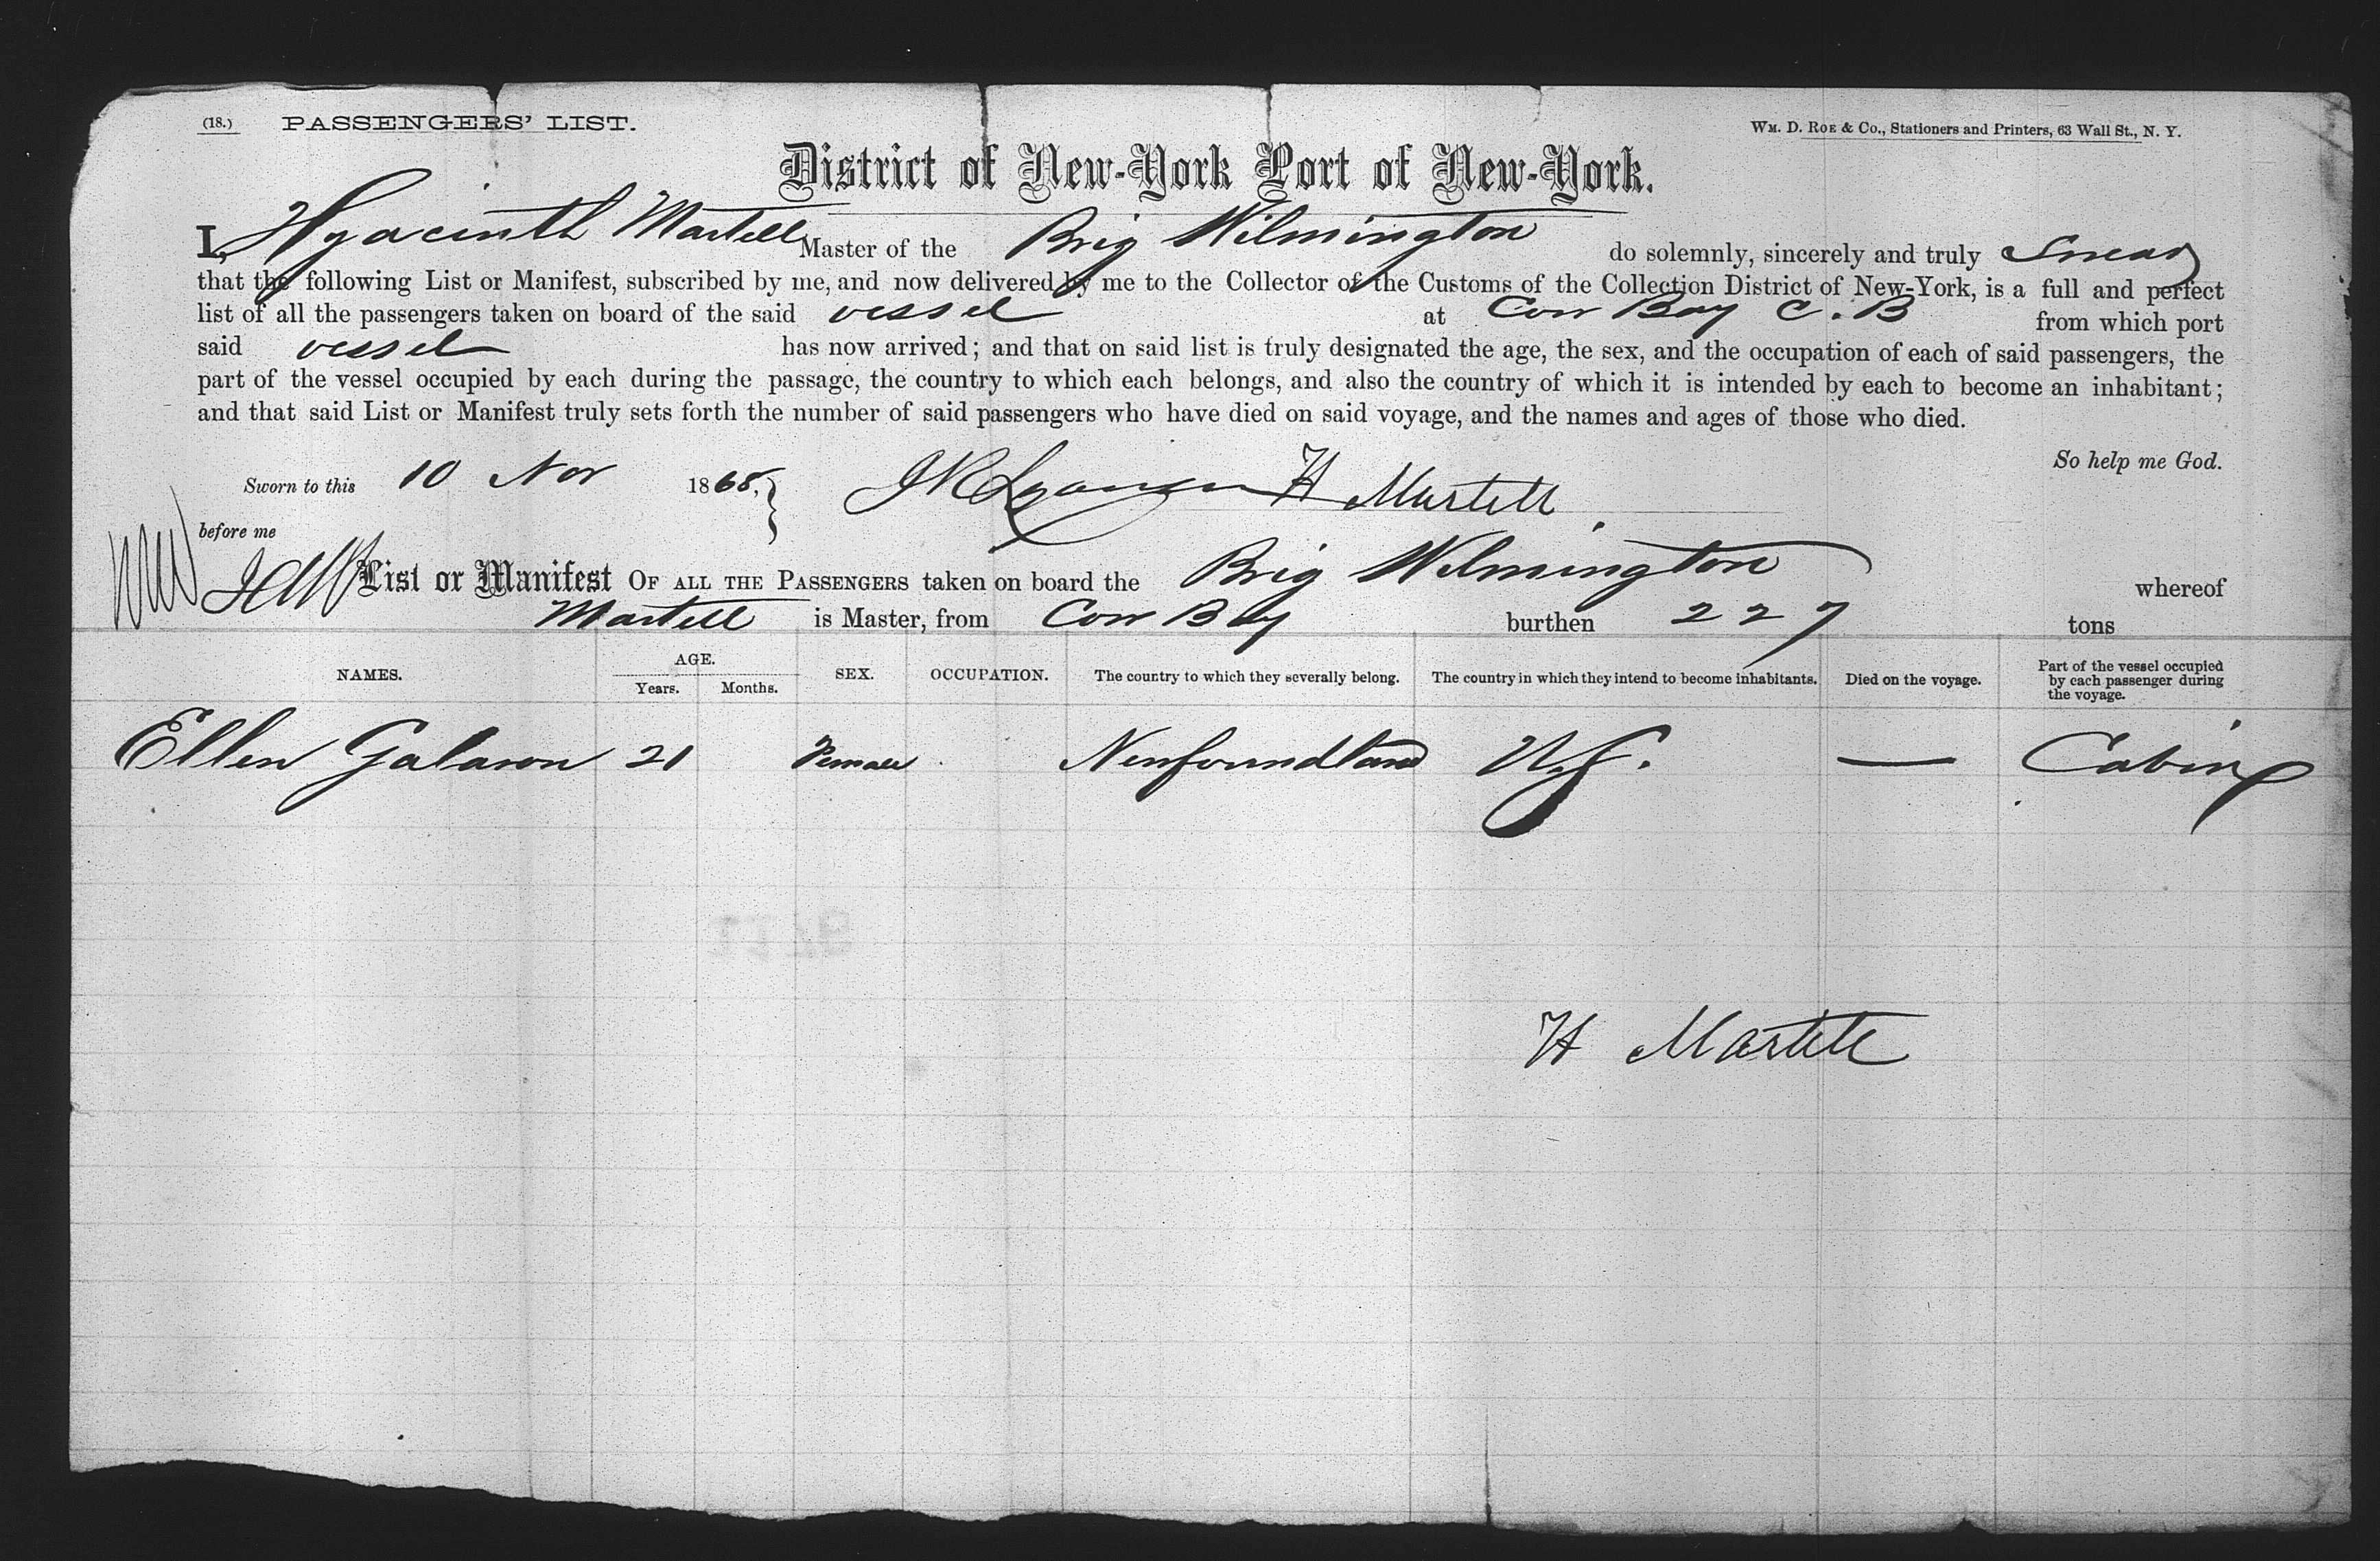 (18.) PASSENGERS' LIST. WM. D. ROE & CO., Stationers and Printers, 63 Wall St., N. Y.
District of New-York Port of New-York.
I, Hyacinth Martell Master of the Brig Wilmington do solemnly, sincerely and truly Swear
that the following List or Manifest, subscribed by me, and now delivered by me to the Collector of the Customs of the Collection District of New-York, is a full and perfect
list of all the passengers taken on board of the said vessel at Cow Bay C. B from which port
said vessel has now arrived; and that on said list is truly designated the age, the sex, and the occupation of each of said passengers, the
part of the vessel occupied by each during the passage, the country to which each belongs, and also the country of which it is intended by each to become an inhabitant;
and that said List or Manifest truly sets forth the number of said passengers who have died on said voyage, and the names and ages of those who died.
So help me God.
Sworn to this 10 Nov 1868, H Martell
before me
List or Manifest OF ALL THE PASSENGERS taken on board the Brig Wilmington whereof
Martell is Master, from Cow Bay burthen 227 tons
NAMES. AGE. Years. Months. SEX. OCCUPATION. The country to which they severally belong. The country in which they intend to become inhabitants. Died on the voyage. Part of the vessel occupied by each passenger during the voyage.
Ellen Galavon 21 Female Newfoundland — Cabin
H Martell